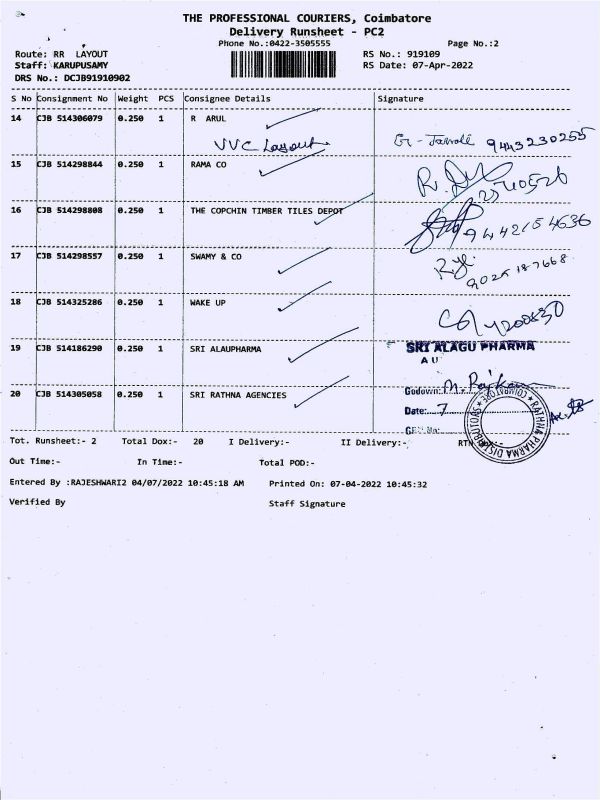 THE PROFESSIONAL COURIERS, Coimbatore
Delivery Runsheet - PC2
Phone No.:0422-3505555
Page No.:2
Route: RR LAYOUT
RS No.: 919109
Staff: KARUPUSAMY
RS Date: 07-Apr-2022
DRS No.: DCJB91910902
S No Consignment No Weight PCS Consignee Details Signature
14 CJB 514306079 0.250 1 R ARUL
VVC Layout 9443230255
15 CJB 514298844 0.250 1 RAMA CO
16 CJB 514298808 0.250 1 THE COPCHIN TIMBER TILES DEPOT
9442154636
17 CJB 514298557 0.250 1 SWAMY & CO
9025187668
18 CJB 514325286 0.250 1 WAKE UP
19 CJB 514186290 0.250 1 SRI ALAUPHARMA
SRI ALAGU PHARMA
20 CJB 514305058 0.250 1 SRI RATHNA AGENCIES
Godown:
Date: 7
RATHNA PHARMA DISTRIBUTORS * COIMBATORE *
Tot. Runsheet:- 2 Total Dox:- 20 I Delivery:- II Delivery:-
Out Time:- In Time:- Total POD:-
Entered By :RAJESHWARI2 04/07/2022 10:45:18 AM Printed On: 07-04-2022 10:45:32
Verified By Staff Signature